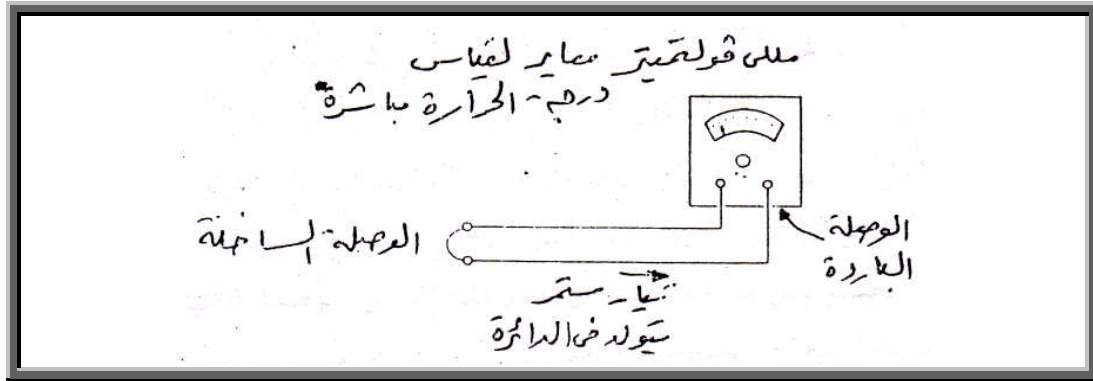 مللى ڤولتميتر معاير لقياس
درجة الحرارة مباشرة
الوصلة
الباردة
الوصلة الساخنة
تيار مستمر
يتولد فى الدائرة